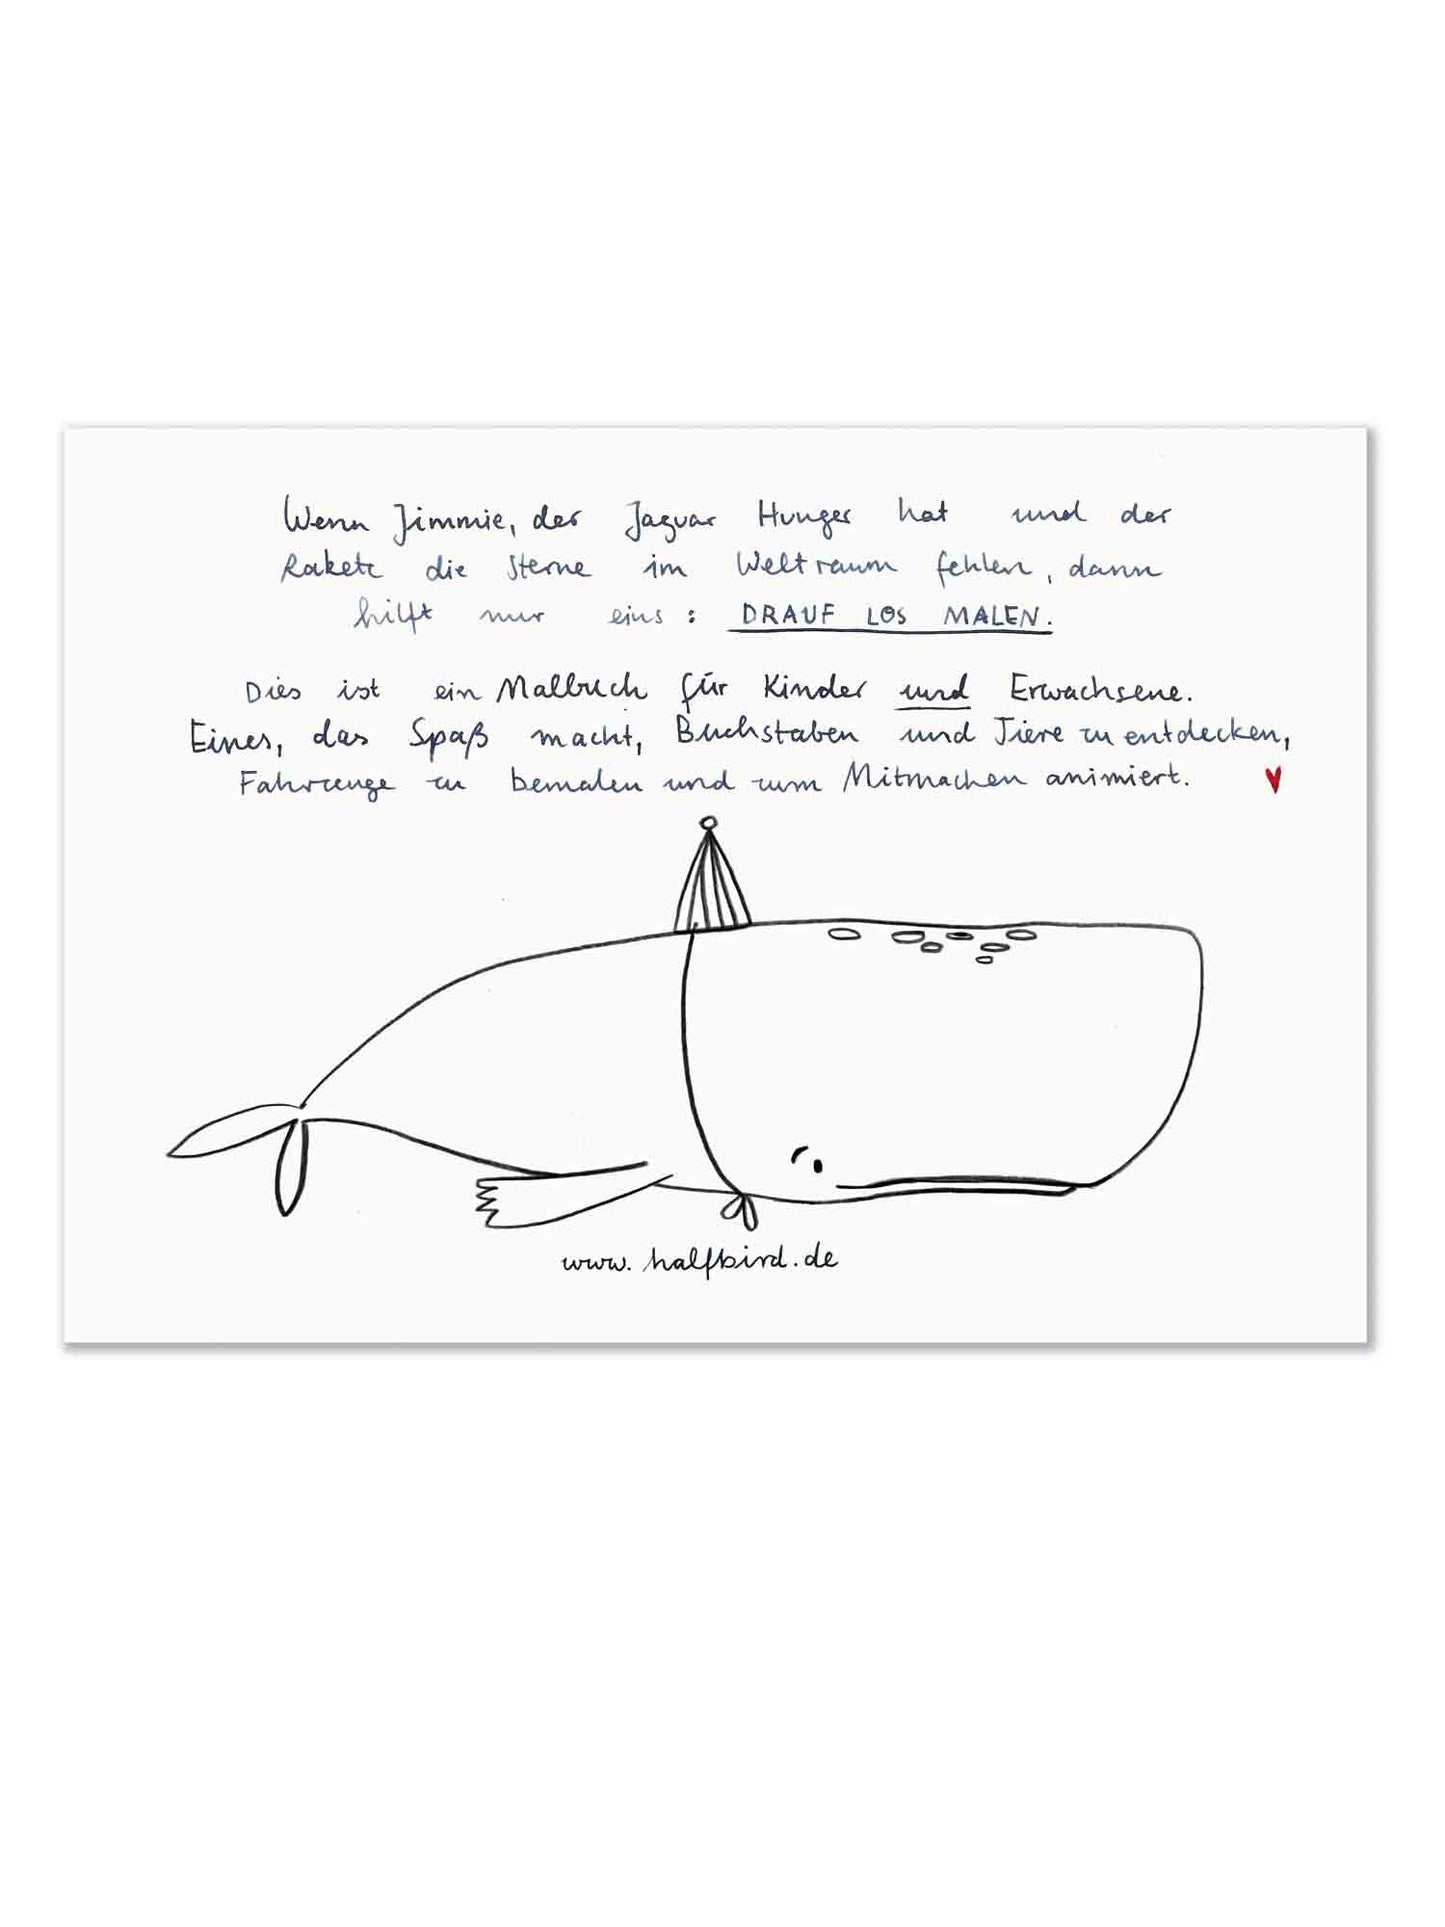 Wenn Jimmie, der Jaguar Hunger hat und der
Rakete die Sterne im Weltraum fehlen, dann
hilft nur eins: DRAUF LOS MALEN.
Dies ist ein Malbuch für Kinder und Erwachsene.
Eines, das Spaß macht, Buchstaben und Tiere zu entdecken,
Fahrzeuge zu bemalen und zum Mitmachen animiert.
www.halfbird.de